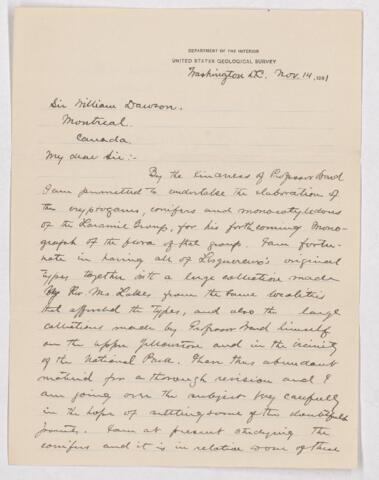 DEPARTMENT OF THE INTERIOR
UNITED STATES GEOLOGICAL SURVEY
Washington D.C. Nov. 14, 1891
Sir William Dawson.
Montreal.
Canada.
My dear Sir:-
By the kindness of Professor Ward
I am permitted to undertake the elaboration
of the cryptogams, conifers and monocotyledons
of the Laramie Group, for his forthcoming Mono-
graph of the flora of that group. I am fortu-
nate in having all of Lesquereux's original
types together with a large collection made
by Rev. Mr. Lakes from the same localities
that afforded the types, and also the large
collections made by Professor Ward himself
on the upper Yellowstone and in the vicinity
of the National Park. I have thus abundant
material for a thorough revision and I
am going over the subject very carefully
in the hope of settling some of the doubtful
points. I am at present studying the
conifers and it is in relation some of these